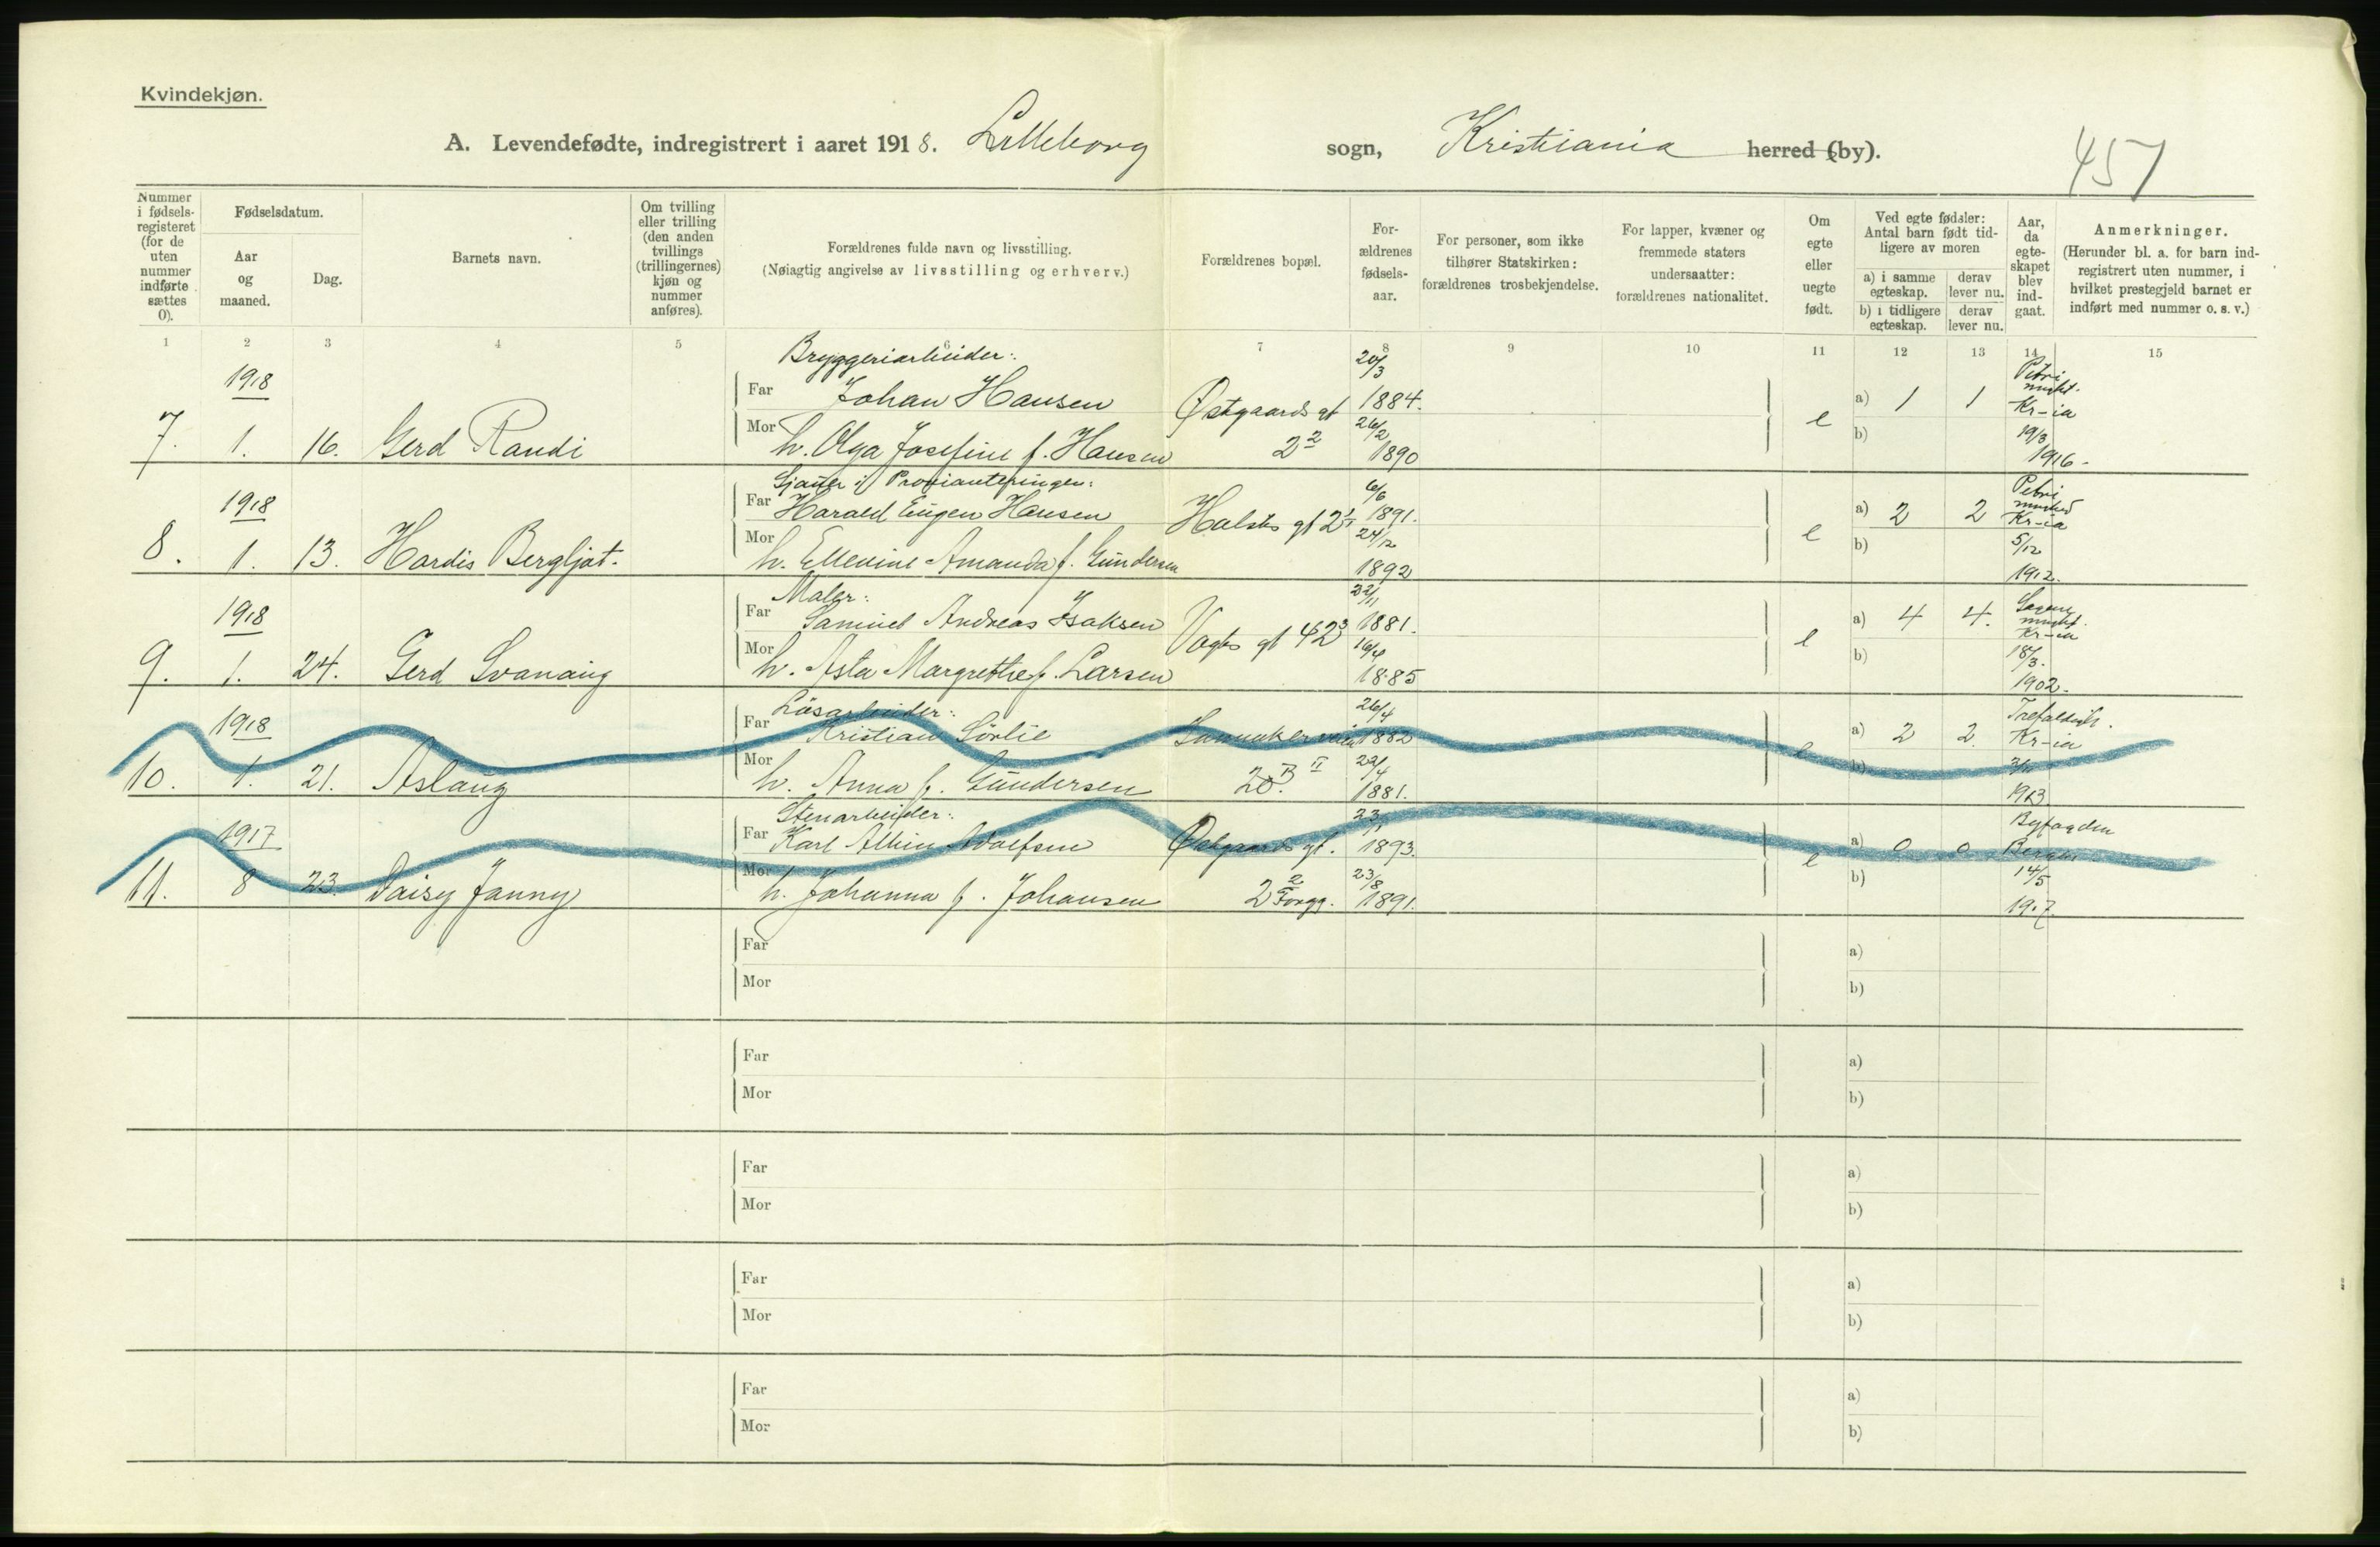 Kvindekjøn.
A. Levendefødte, indregistrert i aaret 1918. Lilleborg sogn, Kristiania herred (by).
457
Nummer i fødselsregisteret (for de uten nummer indførte sættes 0).
Fødselsdatum.
Aar og maaned.
Dag.
Barnets navn.
Om tvilling eller trilling (den anden tvillings (trillingernes) kjøn og nummer anføres).
Forældrenes fulde navn og livsstilling.
(Nøiagtig angivelse av livsstilling og erhverv.)
Forældrenes bopæl.
Forældrenes fødselsaar.
For personer, som ikke tilhører Statskirken: forældrenes trosbekjendelse.
For lapper, kvæner og fremmede staters undersaatter: forældrenes nationalitet.
Om egte eller uegte født.
Ved egte fødsler: Antal barn født tidligere av moren
a) i samme egteskap. derav lever nu.
b) i tidligere egteskap. derav lever nu.
Aar, da egteskapet blev indgaat.
Anmerkninger.
(Herunder bl. a. for barn indregistrert uten nummer, i hvilket prestegjeld barnet er indført med nummer o. s. v.)
1 2 3 4 5 6 7 8 9 10 11 12 13 14 15
Bryggeriarbeider: 20/3 Petri
1918 Far Johan Hansen Østgaards gt 1884. a) 1 1 Kr-ia
7. 1. 16. Gerd Randi Mor h. Olga Josefine f. Hansen 2 2 26/2 1890 e b) 19/3 1916-
Sjauer i Provianteringen: 6/6 Petri
1918 Far Harald Eugen Hansen Halsts gt 2 1891. a) 2 2 Kr-ia
8. 1. 13. Hardis Bergljot. Mor h. Ellevine Amanda f. Gundersen 24/12 1892 e b) 5/12 1912.
Maler: 22/11
1918 Far Samuel Andreas Isaksen Vogts gt 42 3 1881. a) 4 4. Kr-ia
9. 1. 24. Gerd Svanaug Mor h. Asta Margrethe f. Larsen 16/4 1885 e b) 18/3. 1902-
Løsarbeider: 26/4
1918 Far Kristian Sørlie 1882 a) 2 2. Kr-ia
10. 1. 21. Aslaug Mor h. Anna f. Gundersen 20. II 1881. e b) 1913
Stenarbeider: Byfogden
1917 Far Karl Albin Adolfsen Østgaards gt. 1893. a) 0 0 Bergen
11. 8 23. Daisy Janny Mor h. Johanna f. Johansen 2 2 Forgg. 23/8 1891. e b) 14/5 1917
Far a)
Mor b)
Far a)
Mor b)
Far a)
Mor b)
Far a)
Mor b)
Far a)
Mor b)